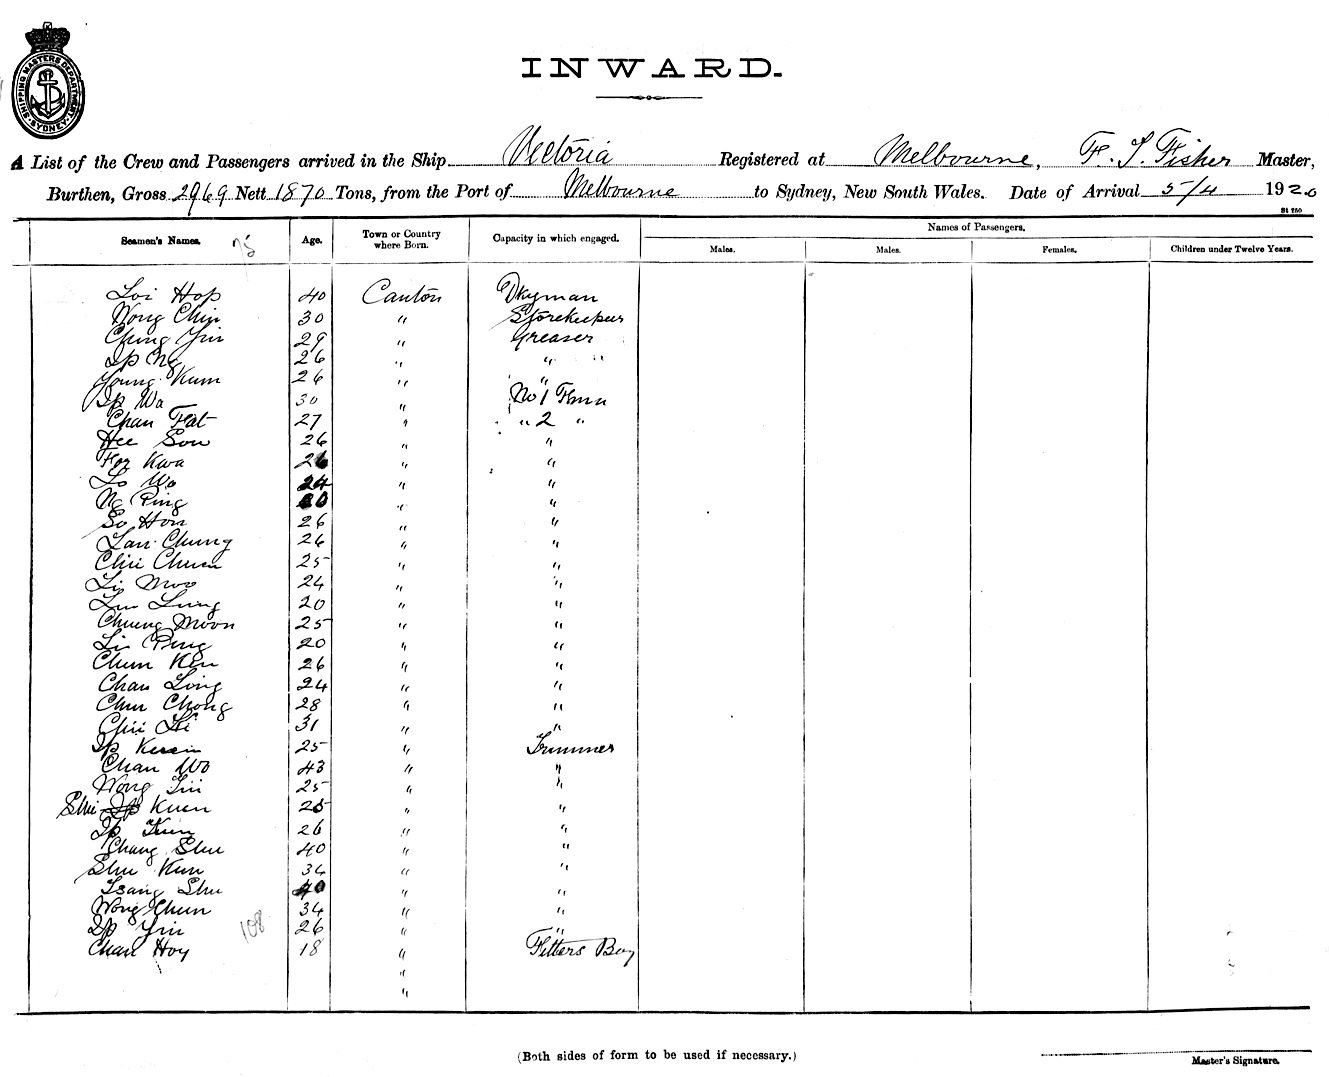 SHIPPING MASTERS DEPARTMENT SYDNEY
INWARD.
A List of the Crew and Passengers arrived in the Ship Victoria Registered at Melbourne, F. S. Fisher Master,
Burthen, Gross 2969 Nett 1870 Tons, from the Port of Melbourne to Sydney, New South Wales. Date of Arrival 5/4 1920
St 750
Seamen's Names. 75 Age. Town or Country where Born. Capacity in which engaged. Names of Passengers.
Males. Males. Females. Children under Twelve Years.
Loi Hop 40 Canton Dkyman
Wong Chin 30 " Storekeeper
Ching Yin 29 " Greaser
Ip Ng 26 " " "
Young Kum 26 " "
Ip Wa 30 " No 1 Fmn
Chan Fat 27 " " 2 "
Hee Son 26 " "
For Kwa 26 " "
Lo Wo 24 " "
Ng Ping 20 " "
So Hon 26 " "
Lan Chung 26 " "
Chii Chuen 25 " "
Li Moo 24 " "
Lui Lung 20 " "
Chung Moon 25 " "
Li Ping 20 " "
Chun Ken 26 " "
Chan Ling 24 " "
Chun Chong 28 " "
Chii Ki 31 " "
Ip 25 " Trimmer
Chan Wo 43 " "
Wong Tui 25 " "
Shui Ip Kuen 25 " "
Ip Kun 26 " "
Chang Shu 40 " "
Shu Kun 34 " "
Tsang Shu 40 " "
Wong Chun 34 " "
Ip Yin 108 26 " "
Chan Hoy 18 " Fitters Boy
"
"
(Both sides of form to be used if necessary.)
Master's Signature.